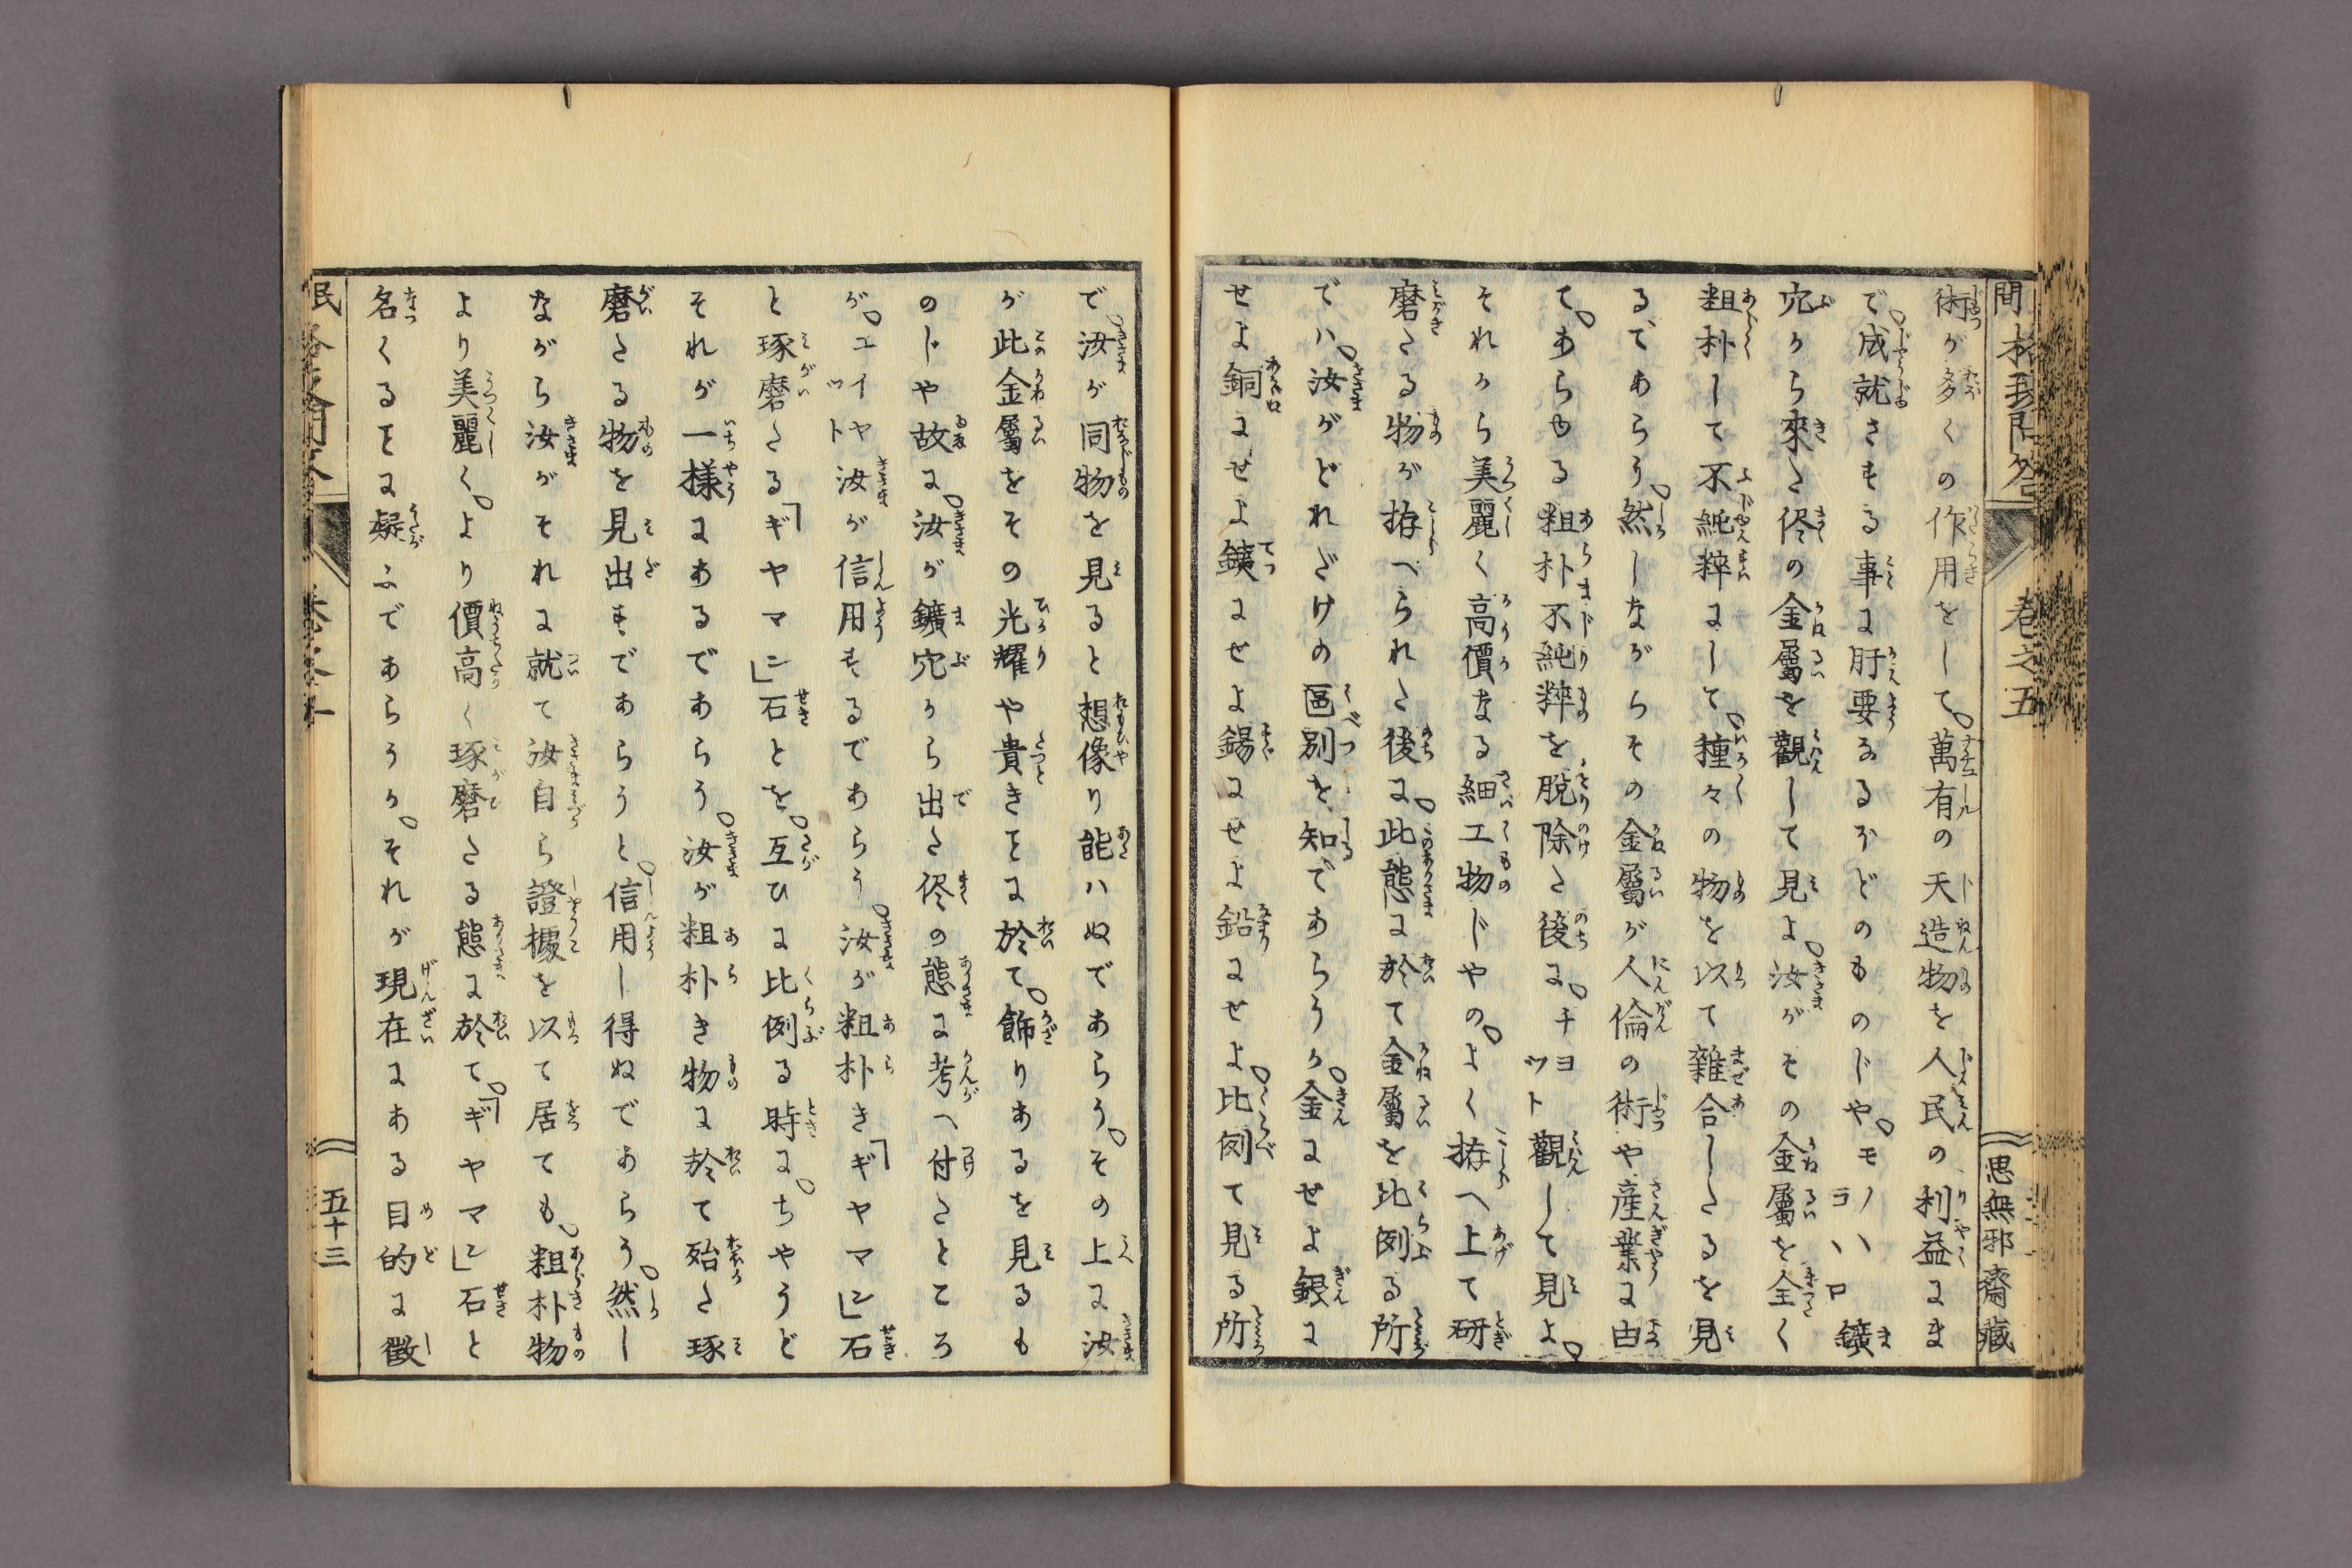 間格致問答 巻之五 思無邪齋藏
術が多くの作用をして。萬有の天造物を人民の利益にま
で。成就さする事に肝要なるかどのものじや。モノハ鑛
穴から來た侭の金屬を觀して見よ。汝がその金屬を全く
粗朴して不純粹にして。種々の物を以て雜合したるを見
るであらう。然しながらその金屬が人倫の術や産業に由
て。あらゆる粗朴不純粹を脱除た後に。チヨット觀して見よ。
それから美麗く高價なる細工物じやの。よく拵へ上て研
磨たる物が拵へられた後に。此態に於て金屬を比例る所
でハ。汝がどれだけの區別を知であらうか。金にせよ銀に
せよ銅にせよ鐵にせよ錫にせよ鉛にせよ。比例て見る所
で。汝が同物を見ると想像り能ハぬであらう。その上に汝
が此金屬をその光耀や貴きとに於て。飾りあるを見るも
のじや故に。汝が鑛穴から出た侭の態に考へ付たところ
が。エイヤット汝が信用するであらう。汝が粗朴き「ギヤマン」石
と琢磨たる「ギヤマン」石とを。互ひに比例る時に。ちやうど
それが一樣にあるであらう。汝が粗朴き物に於て殆た琢
磨たる物を見出すであらうと。信用し得ぬであらう。然し
ながら汝がそれに就て汝自ら證據を以て居ても。粗朴物
より美麗く。より價高く琢磨たる態に於て。「ギヤマン」石と
名くるとに疑ふであらうか。それが現在にある目的に徴
民 五十三